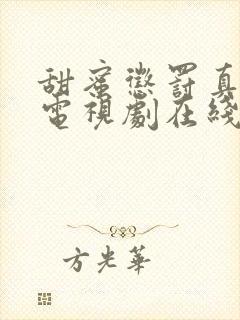 甜蜜懲罰真
電視劇在綫
方光華